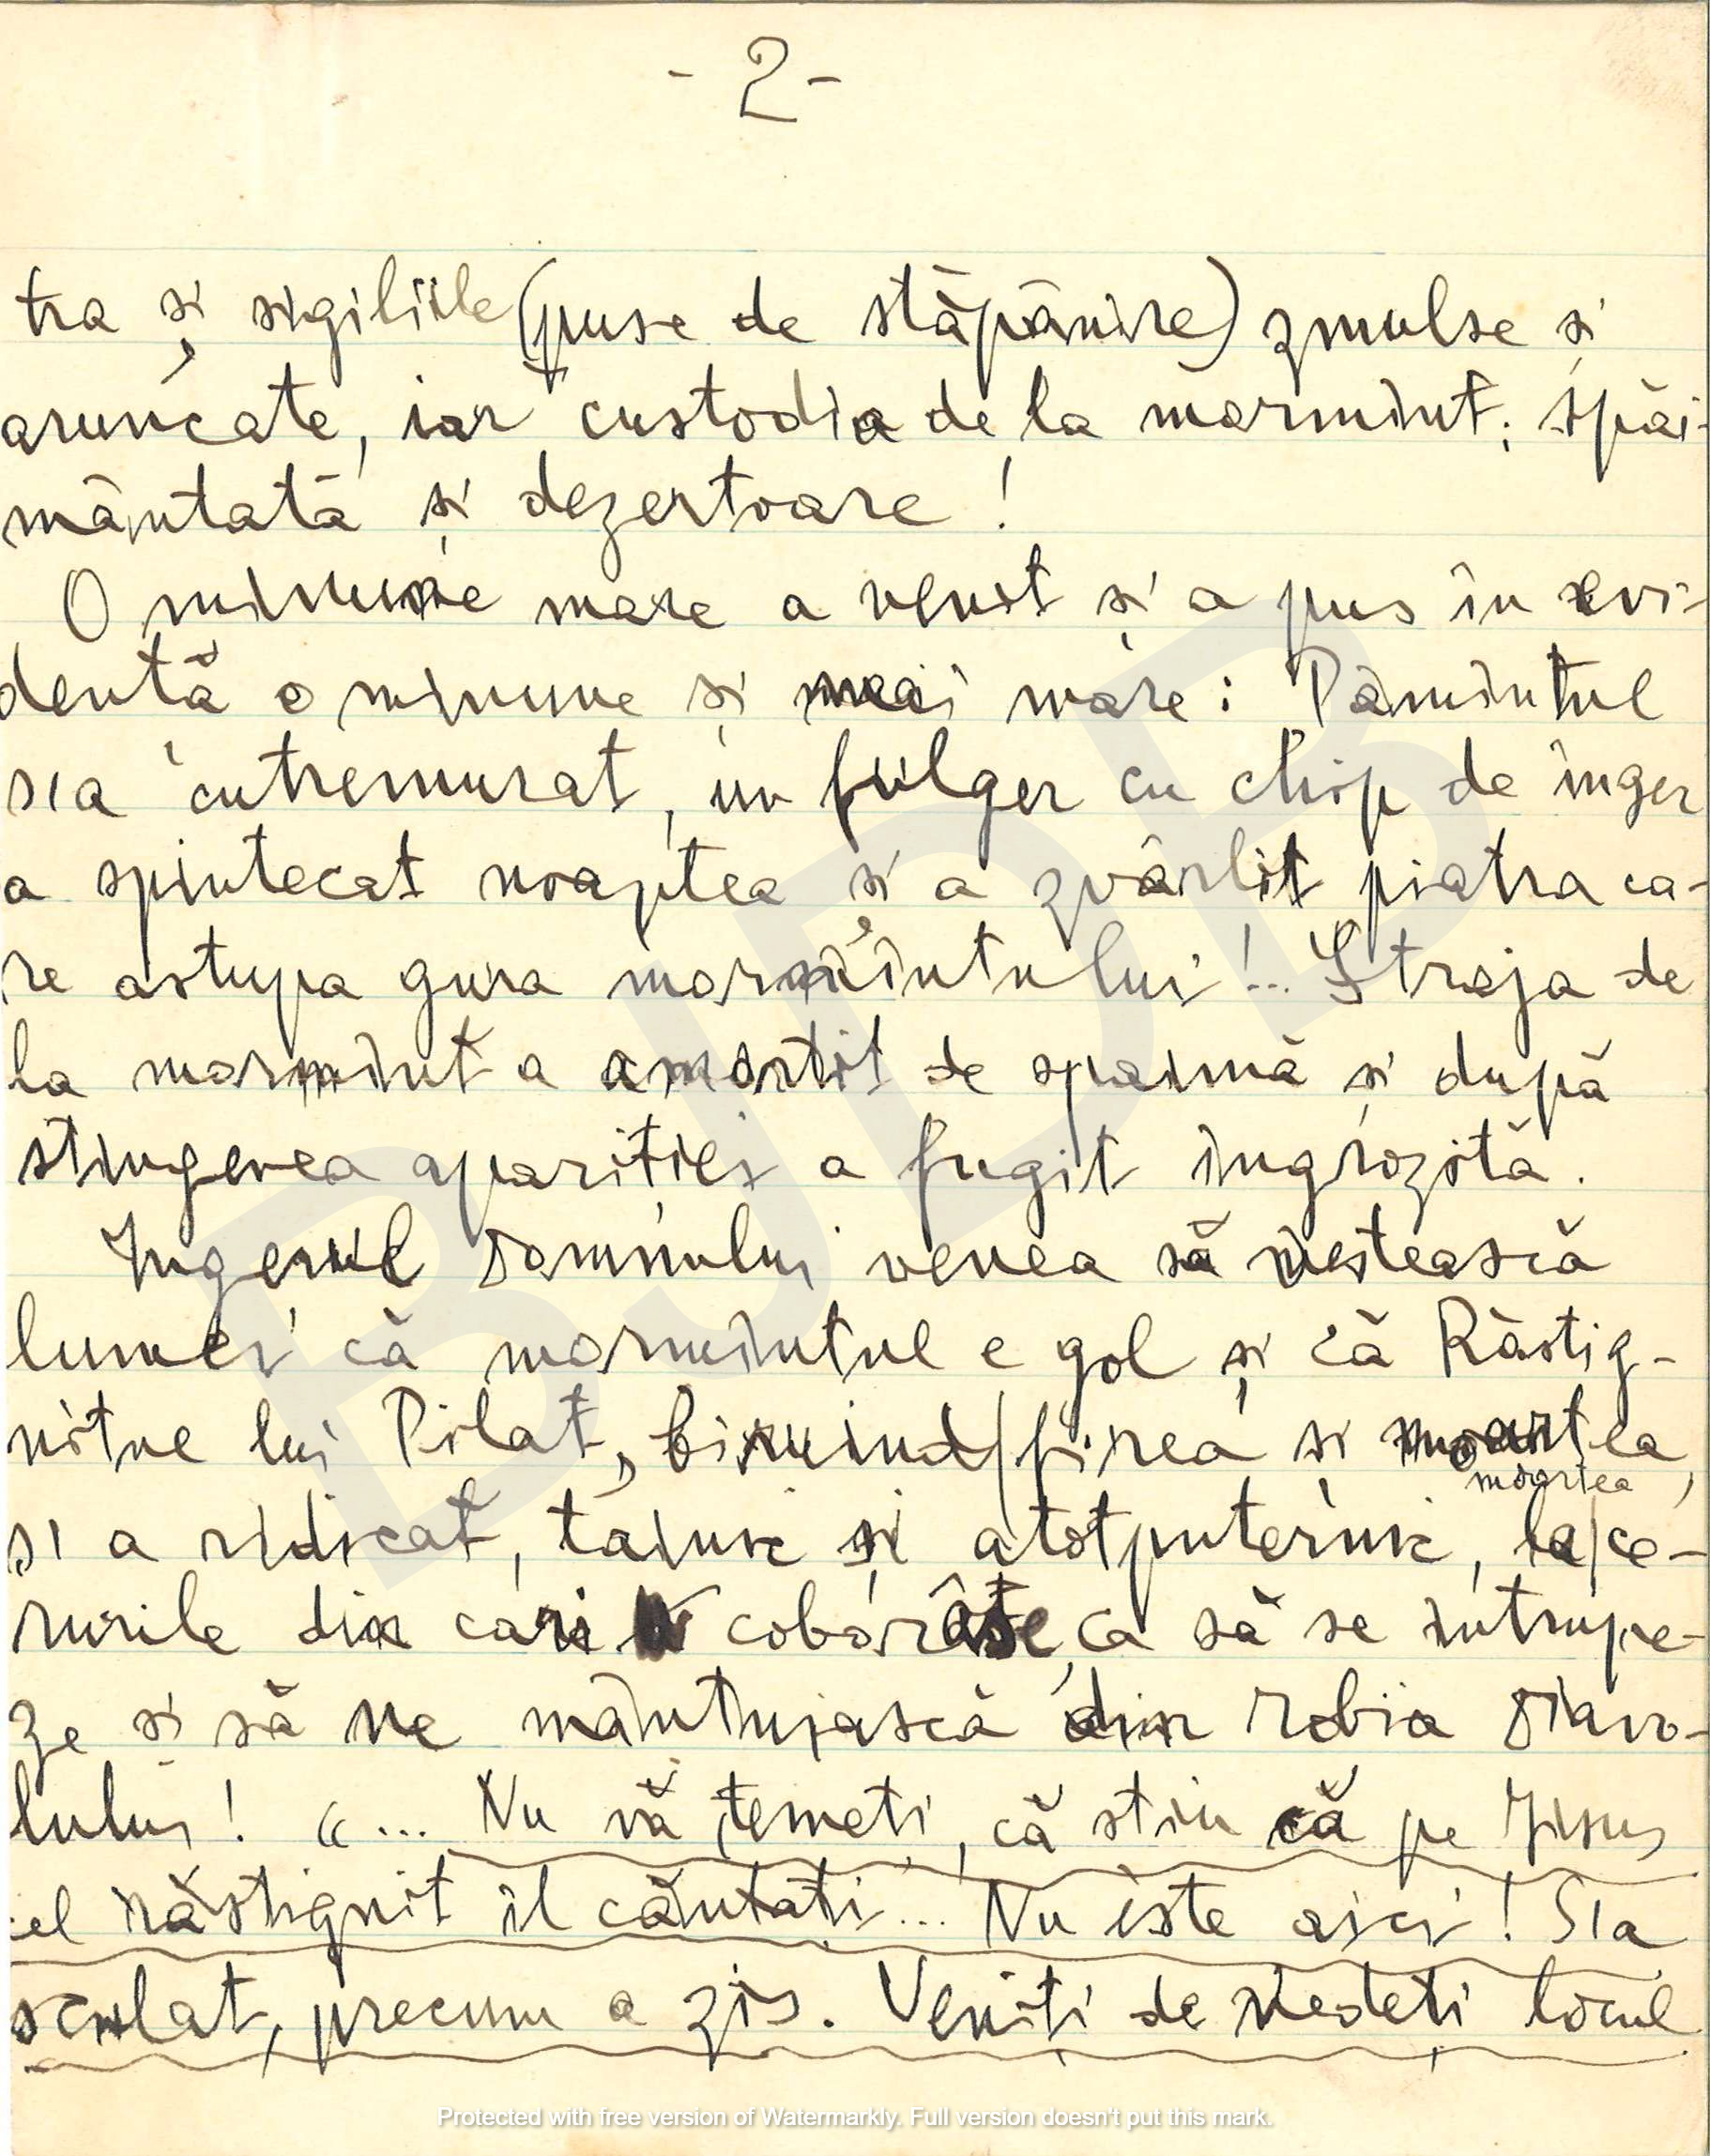 - 2 -
tra și sigiliile (puse de stăpânire) zmulse și
aruncate, iar custodia de la mormînt: spăi-
mântată și dezertoare!
O minune mare a venit și a pus în evi-
dență o minune și mai mare: Pămîntul
s'a cutremurat, un fulger cu chip de înger
a spintecat noaptea și a zvârlit piatra ca-
re astupa gura mormîntului!... Straja de
la mormînt a amorțit de spaimă și după
stingerea apariției a fugit îngrozită.
Ingerul Domnului venea să vestească
lumei că mormîntul e gol și că Răstig-
nitul lui Pilat, biruind firea și moartea,
moartea
s'a ridicat, tainic și atotputernic, la ce-
rurile din cari coborâse, ca să se întrupe-
ze și să ne mântuiască din robia Diavo-
lului! "... Nu vă temeți, că știu că pe Iisus
cel răstignit îl căutați... Nu este aici! S'a
sculat, precum a zis. Veniți de vedeți locul
BJDB
Protected with free version of Watermarkly. Full version doesn't put this mark.